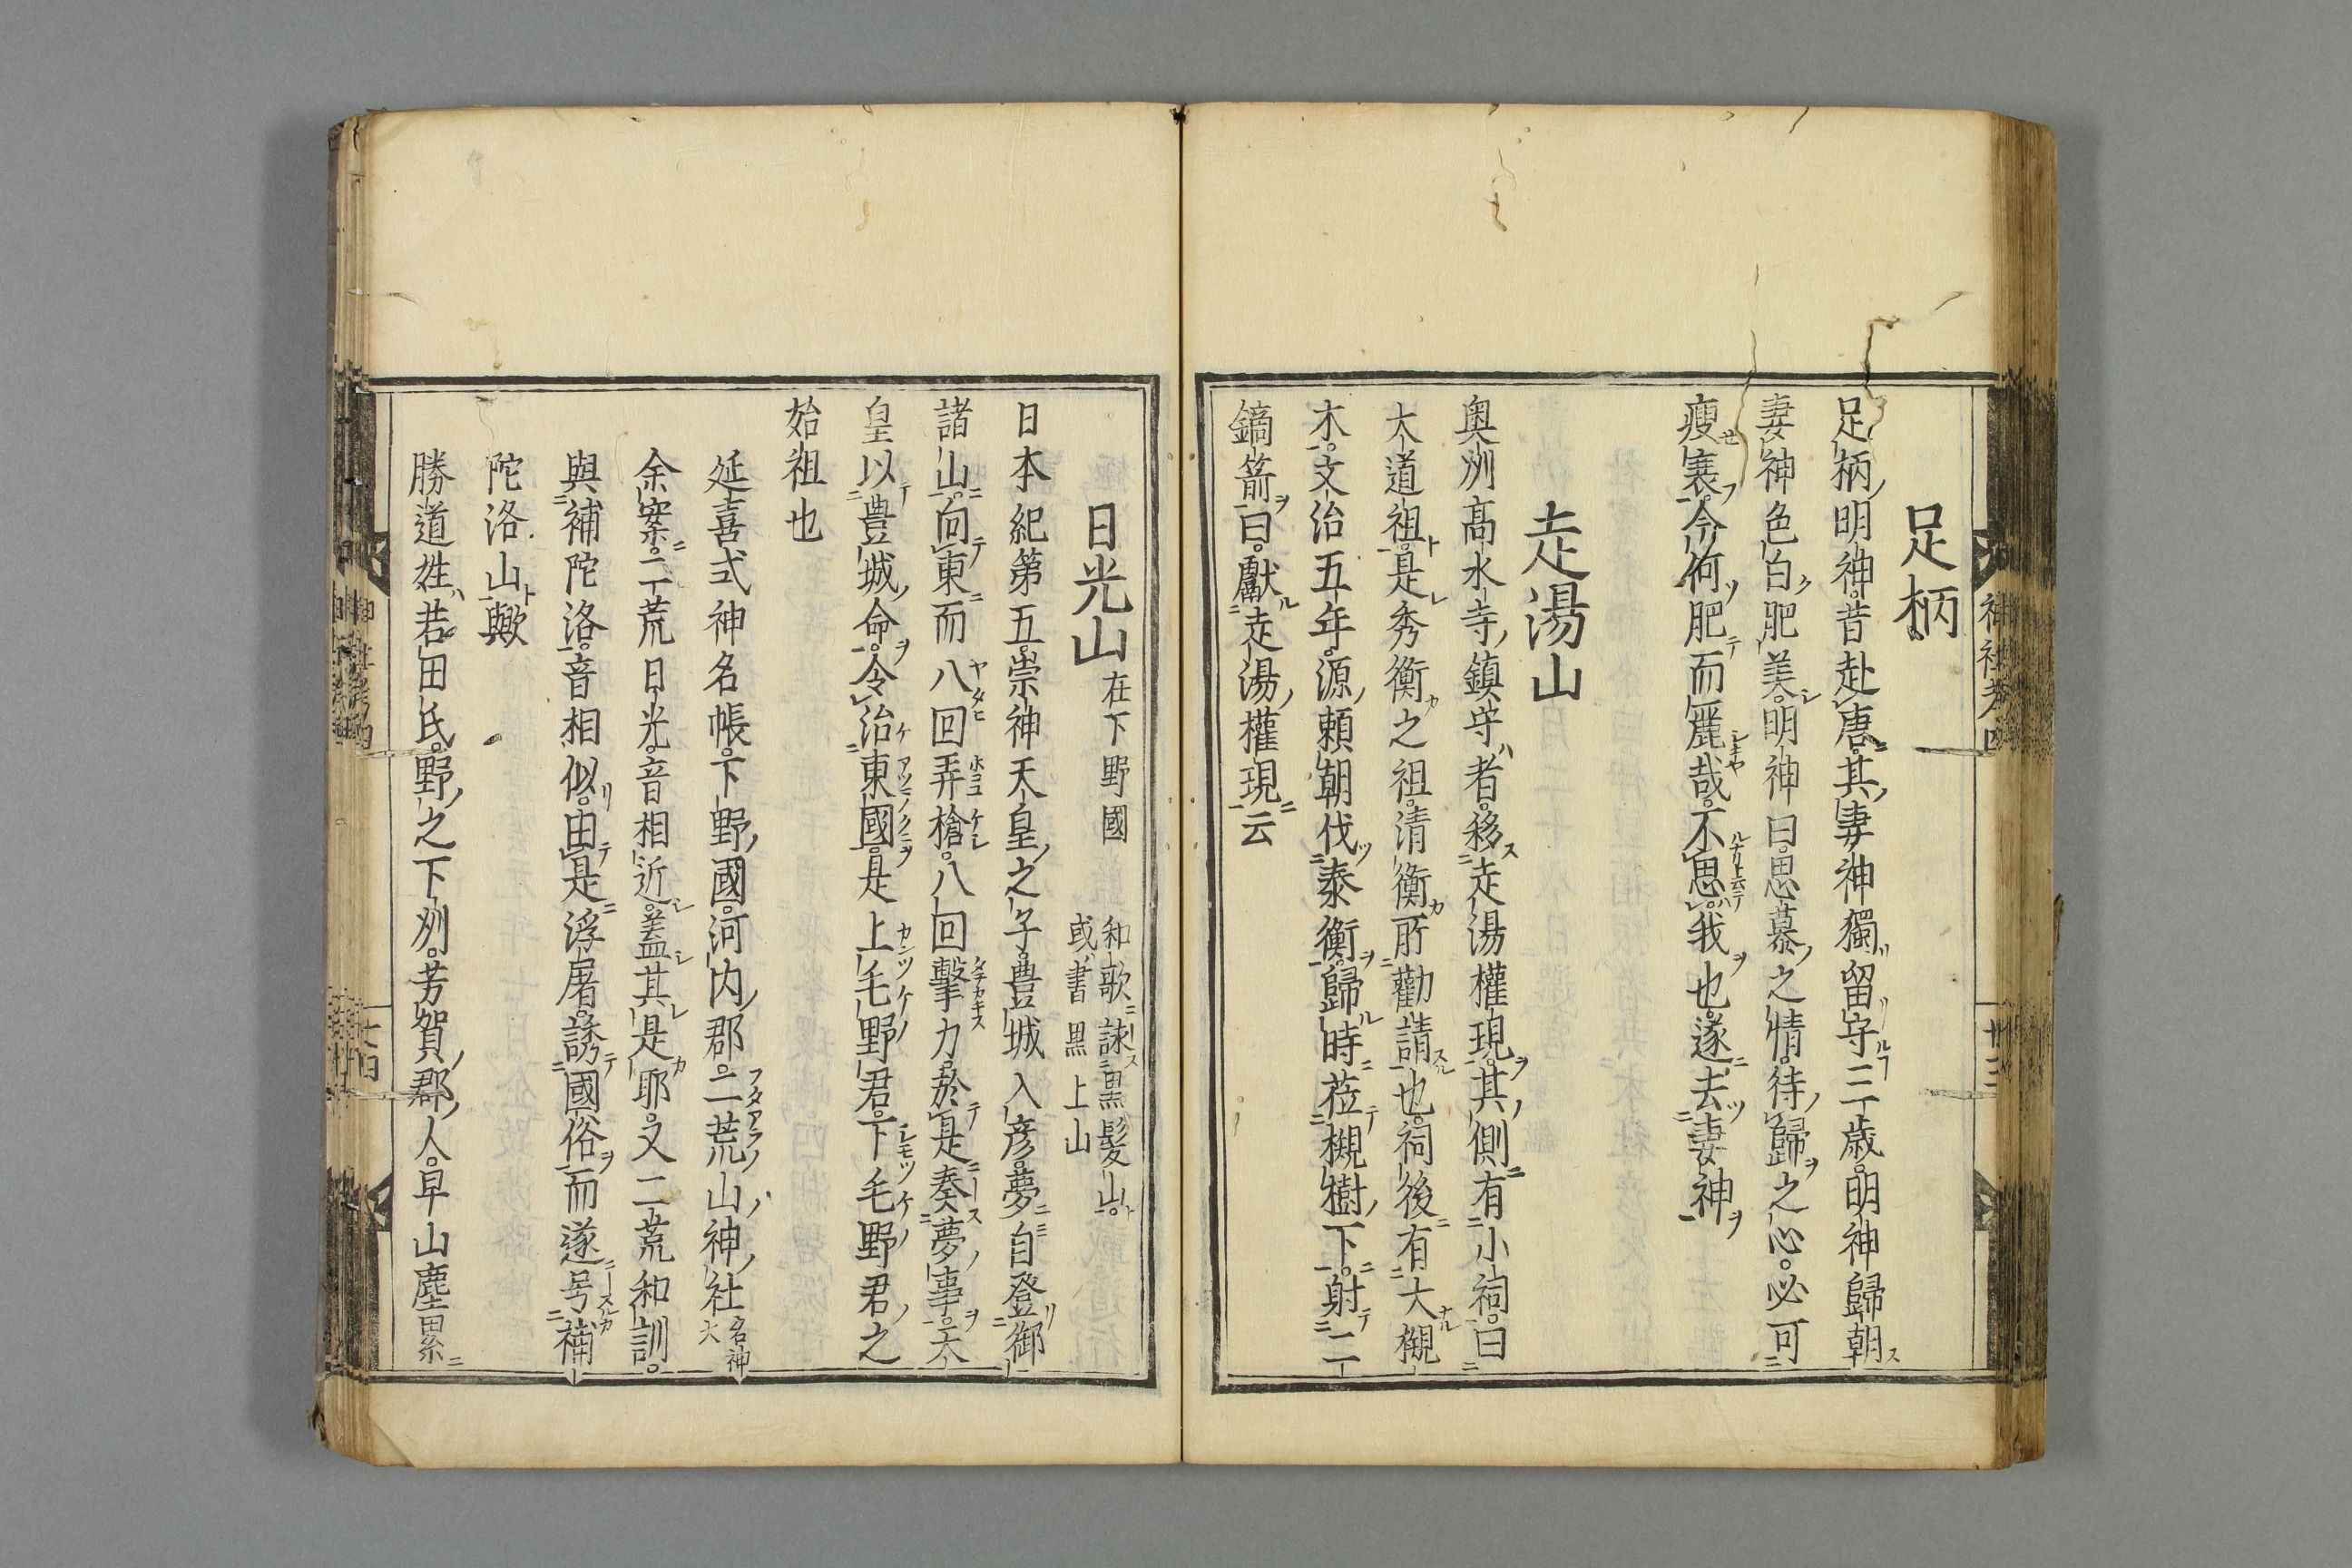 足柄
足柄明神。昔赴唐。其妻神獨留守三歳。明神歸朝
妻神色白肥美。明神曰。思慕之情。待歸之心。必可
瘦衰。今何肥而麗哉。不思我也。遂去妻神
走湯山
奥州高水寺鎮守者。移走湯權現。其側有小祠。曰
大道祖。是秀衡之祖。清衡所勸請也。祠後有大槻
木。文治五年。源頼朝伐泰衡。歸時莅槻樹下。射二
鏑箭。曰。獻走湯權現云
日光山 在下野國 和歌詠黒髪山。
或書黒上山
日本紀第五。崇神天皇之子。豊城入彦。夢自登御
諸山。向東而八回弄槍。八回擊刀。於是奏夢事。天
皇以豊城命。令治東國。是上毛野君。下毛野君之
始祖也
延喜式神名帳。下野國。河内郡。二荒山神社 名神大
余案。二荒日光。音相近。蓋其是耶。又二荒和訓。
與補陀洛。音相似。由是浮屠。誘國俗。而遂号補
陀洛山歟
勝道姓若田氏。野之下州。芳賀郡人。早山塵累
神社考四
卅三